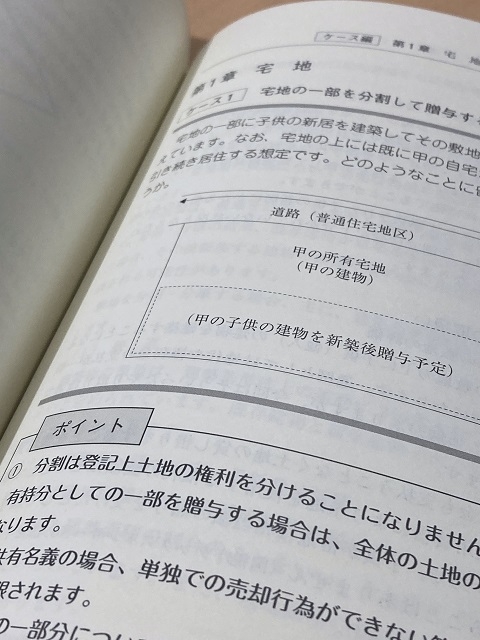 ケース編 第1章 宅地
第1章 宅 地
ケース1 宅地の一部を分割して贈与す
宅地の一部に子供の新居を建築してその敷地
えています。なお、宅地の上には既に甲の自宅
引き続き居住する想定です。どのようなことに
うか。
道路（普通住宅地区）
甲の所有宅地
（甲の建物）
（甲の子供の建物を新築後贈与予定）
ポイント
① 分割は登記上土地の権利を分けることになりません
有持分としての一部を贈与する場合は、全体の土地の
なります。
共有名義の場合、単独での売却行為ができない
限されます。
の一部分につい